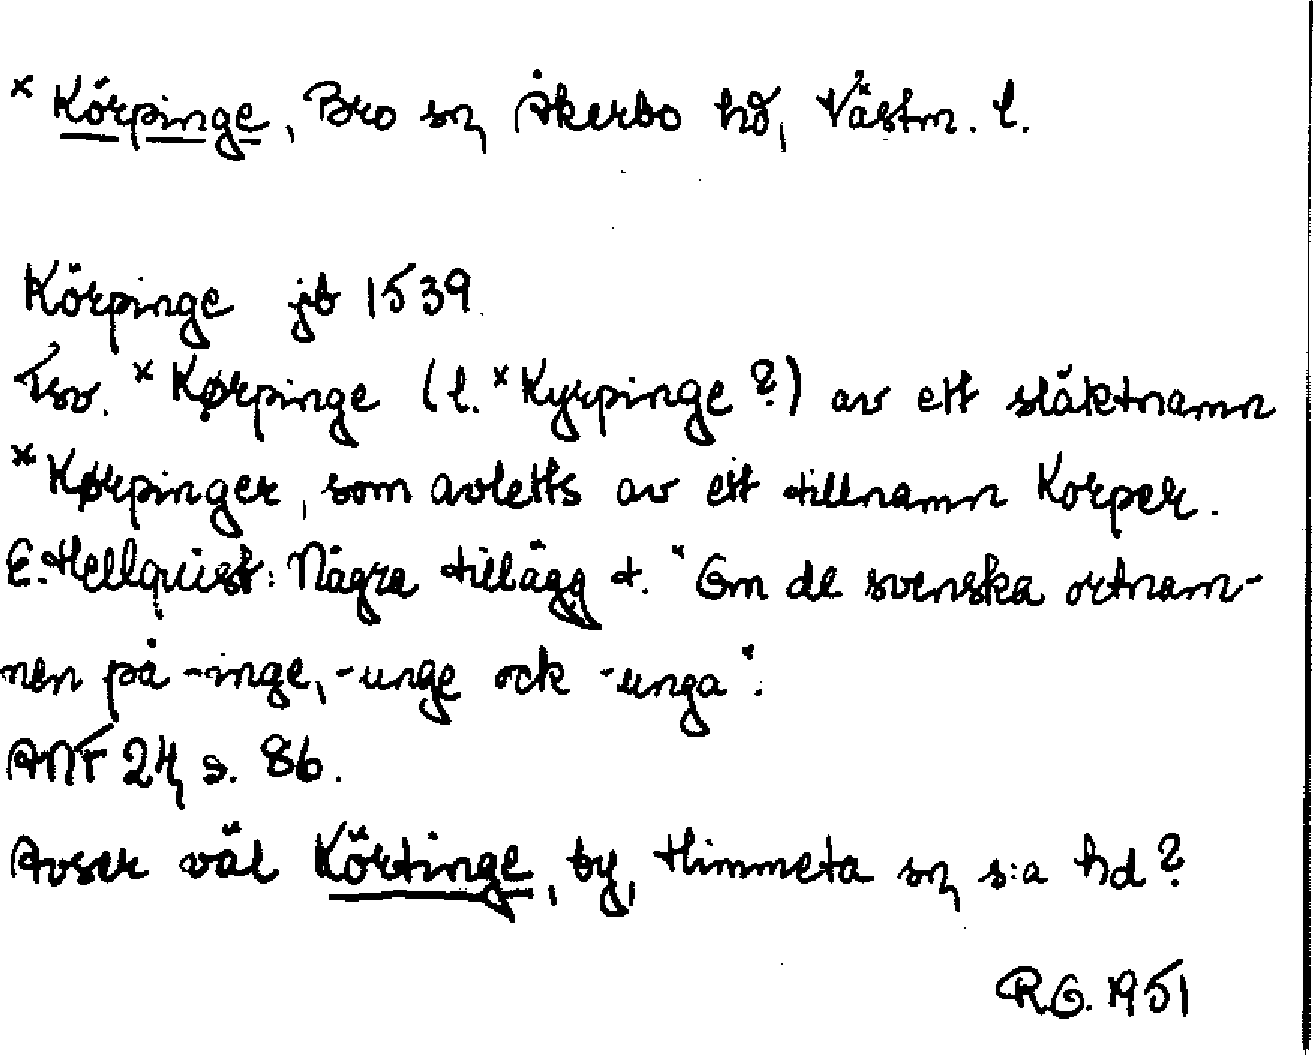 × Körpinge, Bro sn, Åkerbo hd, Västm. l.
Körpinge jb 1539.
Fsv. × Kørpinge (l. × Kyrpinge?) av ett släktnamn
× Kørpinger, som avletts av ett tillnamn Korper.
E. Hellquist: Några tillägg t. "Om de svenska ortnam-
nen på -inge, -unge ock -unga".
ANF 24, s. 86.
Avser väl Körtinge, by, Himmeta sn, s:a hd?
R.G. 1951